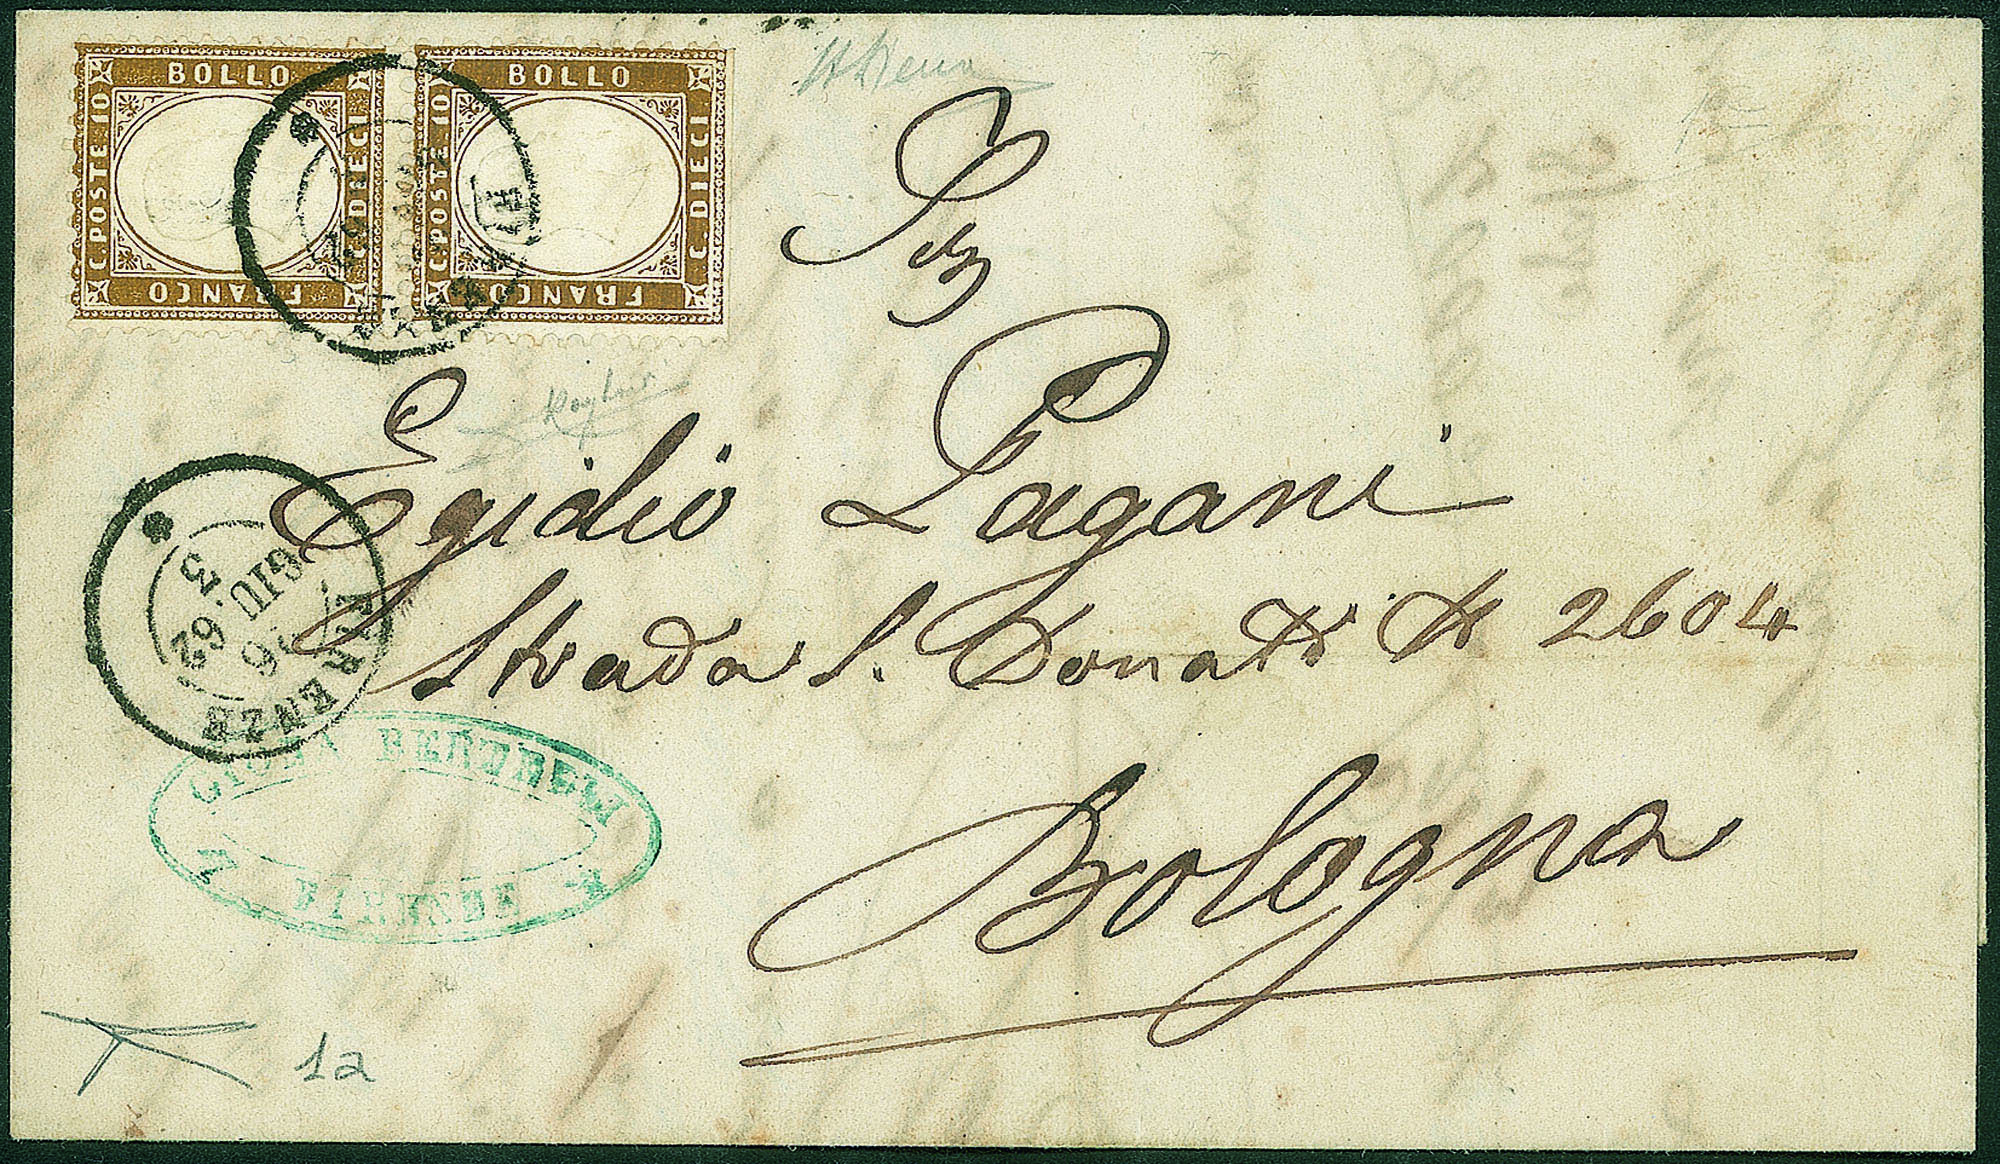 BOLLO
C. POSTE 10
C. DIECI
FRANCO
BOLLO
C. POSTE 10
C. DIECI
FRANCO
Egidio Pagani
Strada S. Donato N 2604
Bologna
FIRENZE
26
GIU. 62
3
FIRENZE
12